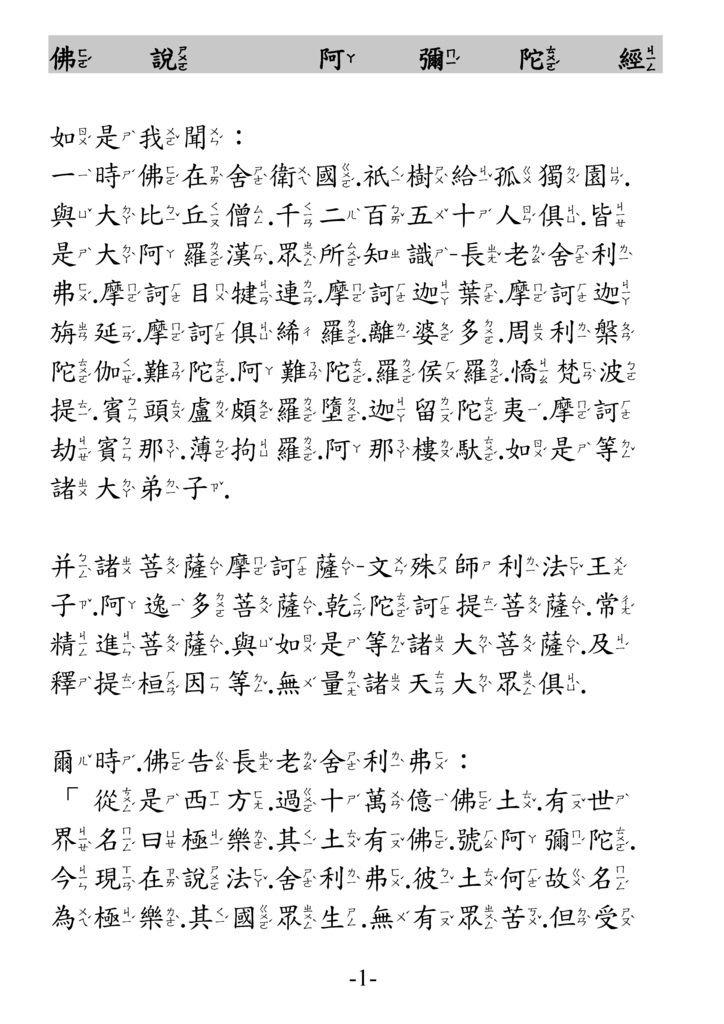 佛說阿彌陀經
如是我聞：
一時佛在舍衛國.祇樹給孤獨園.
與大比丘僧.千二百五十人俱.皆
是大阿羅漢.眾所知識-長老舍利
弗.摩訶目犍連.摩訶迦葉.摩訶迦
旃延.摩訶俱絺羅.離婆多.周利槃
陀伽.難陀.阿難陀.羅侯羅.憍梵波
提.賓頭盧頗羅墮.迦留陀夷.摩訶
劫賓那.薄拘羅.阿那樓馱.如是等
諸大弟子.
并諸菩薩摩訶薩-文殊師利法王
子.阿逸多菩薩.乾陀訶提菩薩.常
精進菩薩.與如是等諸大菩薩.及
釋提桓因等.無量諸天大眾俱.
爾時.佛告長老舍利弗：
「從是西方.過十萬億佛土.有世
界名曰極樂.其土有佛.號阿彌陀.
今現在說法.舍利弗.彼土何故名
為極樂.其國眾生.無有眾苦.但受
-1-